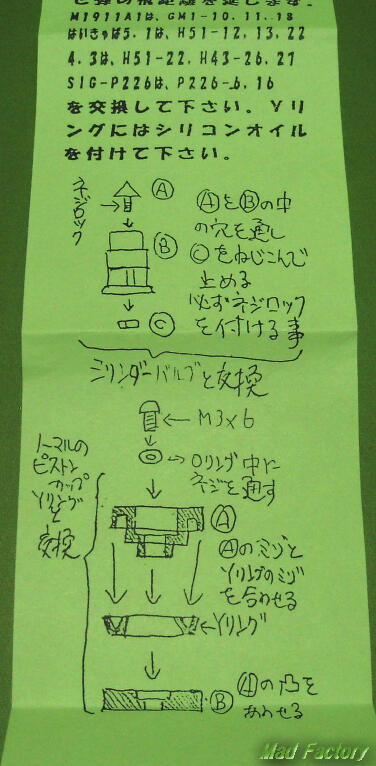 M1911A1は、GM1-10、11、18
はいきゃぱ5.1は、H51-12、13、22
4.3は、H51-22、H43-26、27
SIG-P226は、P226-6、16
を交換して下さい。Yリ
ングにはシリコンオイル
を付けて下さい。
ネジロック
A
B
C
AをBの中
の穴を通し
Cをねじこんで
止める
必ずネジロック
を付ける事
シリンダーバルブと交換
M3×6
Oリング 中に
ネジを通す
ノーマルの
ピストン
カップ
Yリングと
交換
A
Aのミゾと
Yリングのミゾ
を合わせる
Yリング
B
Aの凸を
あわせる
Mad Factory